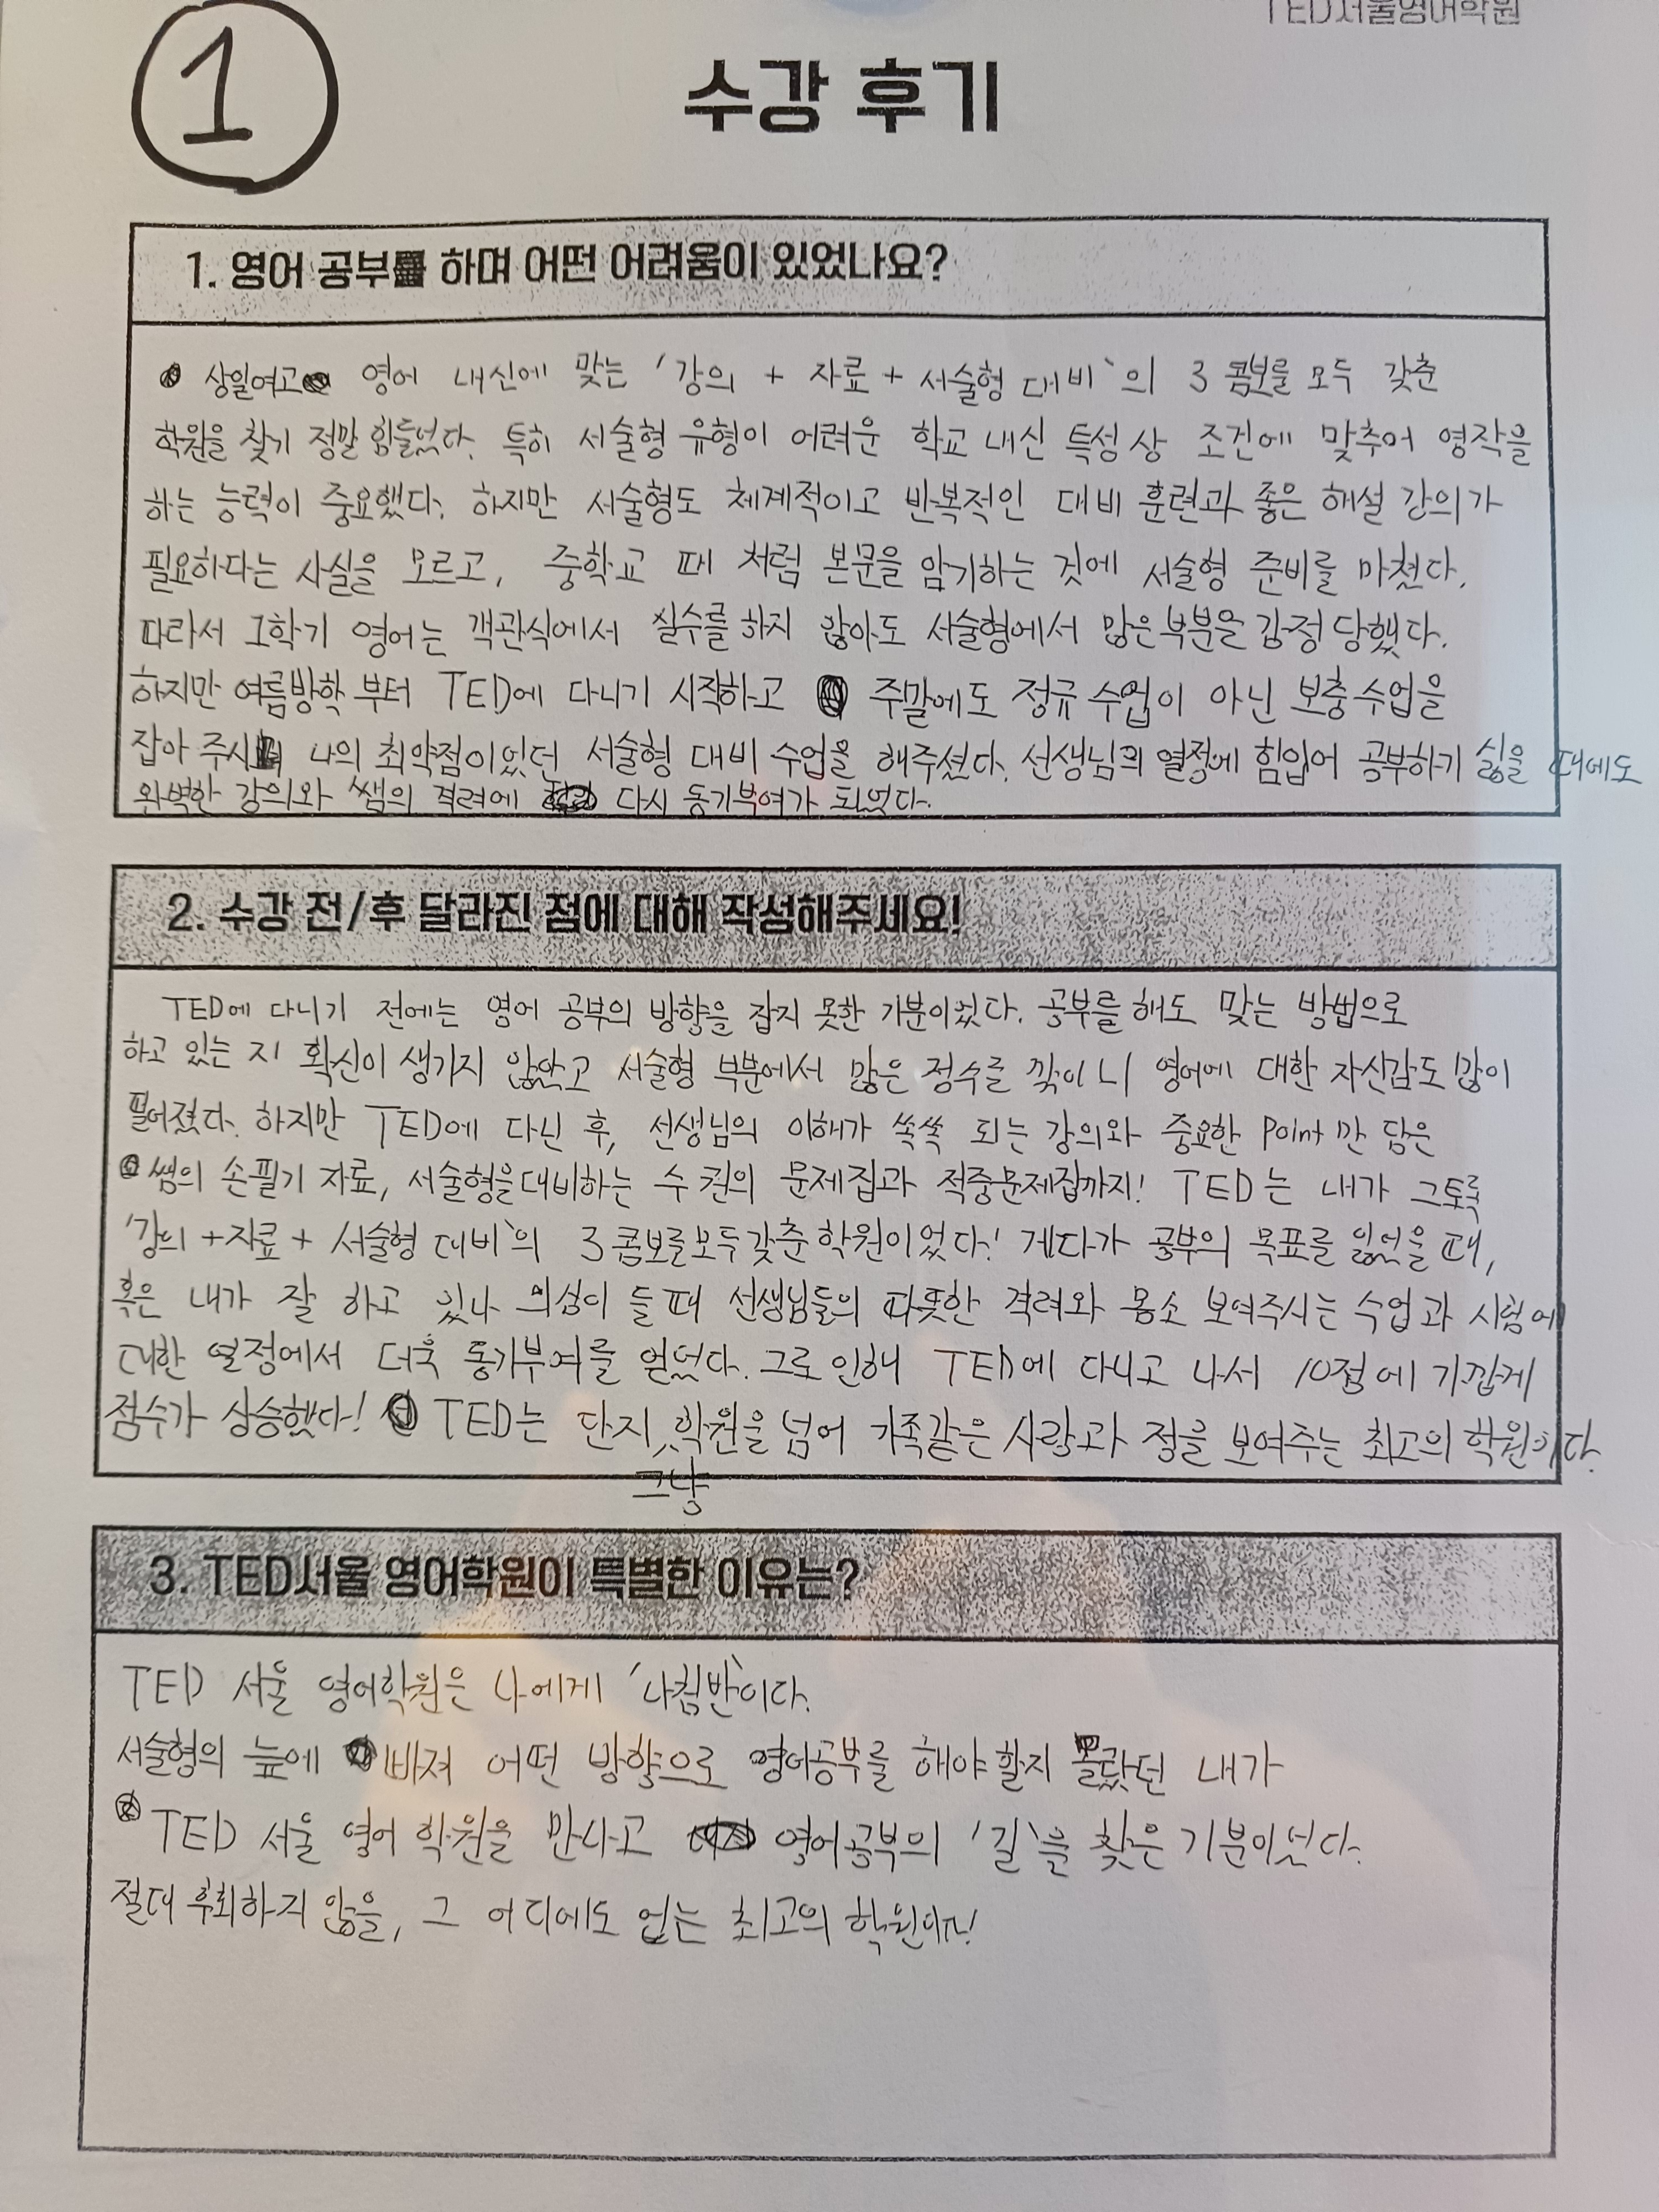 TED서울영어학원
1
수강 후기
1. 영어 공부를 하며 어떤 어려움이 있었나요?
상일여고 영어 내신에 맞는 '강의 + 자료 + 서술형 대비'의 3 콤보를 모두 갖춘
학원을 찾기 정말 힘들었다. 특히 서술형 유형이 어려운 학교 내신 특성 상 조건에 맞추어 영작을
하는 능력이 중요했다. 하지만 서술형도 체계적이고 반복적인 대비 훈련과 좋은 해설 강의가
필요하다는 사실을 모르고, 중학교 때 처럼 본문을 암기하는 것에 서술형 준비를 마쳤다.
따라서 1학기 영어는 객관식에서 실수를 하지 않아도 서술형에서 많은 부분을 감점 당했다.
하지만 여름방학 부터 TED에 다니기 시작하고 주말에도 정규 수업이 아닌 보충수업을
잡아 주시며 나의 최약점이었던 서술형 대비 수업을 해주셨다. 선생님의 열정에 힘입어 공부하기 싫을 때에도
완벽한 강의와 쌤의 격려에 다시 동기부여가 되었다.
2. 수강 전/후 달라진 점에 대해 작성해주세요!
TED에 다니기 전에는 영어 공부의 방향을 잡지 못한 기분이었다. 공부를 해도 맞는 방법으로
하고 있는 지 확신이 생기지 않았고 서술형 부분에서 많은 점수를 깎이니 영어에 대한 자신감도 많이
떨어졌다. 하지만 TED에 다닌 후, 선생님의 이해가 쏙쏙 되는 강의와 중요한 Point만 담은
쌤의 손필기 자료, 서술형을 대비하는 수 권의 문제집과 적중문제집까지! TED는 내가 그토록
'강의 +자료 + 서술형 대비'의 3콤보를 모두 갖춘 학원이었다! 게다가 공부의 목표를 잃었을 때,
혹은 내가 잘 하고 있나 의심이 들 때 선생님들의 따뜻한 격려와 몸소 보여주시는 수업과 시험에
대한 열정에서 더욱 동기부여를 얻었다. 그로 인해 TED에 다니고 나서 10점에 가깝게
점수가 상승했다! TED는 단지 그냥 학원을 넘어 가족같은 사랑과 정을 보여주는 최고의 학원이다.
3. TED서울 영어학원이 특별한 이유는?
TED 서울 영어학원은 나에게 '나침반'이다.
서술형의 늪에 빠져 어떤 방향으로 영어공부를 해야 할지 몰랐던 내가
TED 서울 영어 학원을 만나고 영어공부의 '길'을 찾은 기분이었다.
절대 후회하지 않을, 그 어디에도 없는 최고의 학원이다!